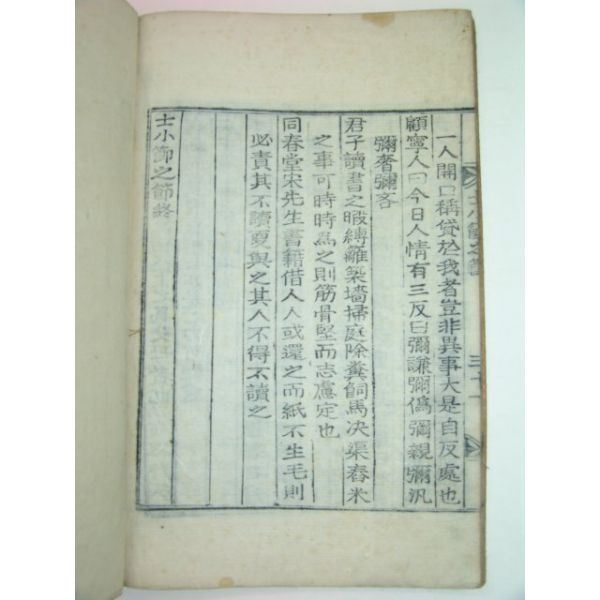 士小節之節
一人開口稱貸於我者豈非異事大是自反處也
顧寧人曰今日人情有三反曰彌謙彌僞彌親彌汎
彌奢彌吝
君子讀書之暇縛籬築墻掃庭除糞飼馬决渠舂米
之事可時時為之則筋骨堅而志慮定也
同春堂宋先生書籍借人人或還之而紙不生毛則
必責其不讀更與之其人不得不讀之
士小節之節終